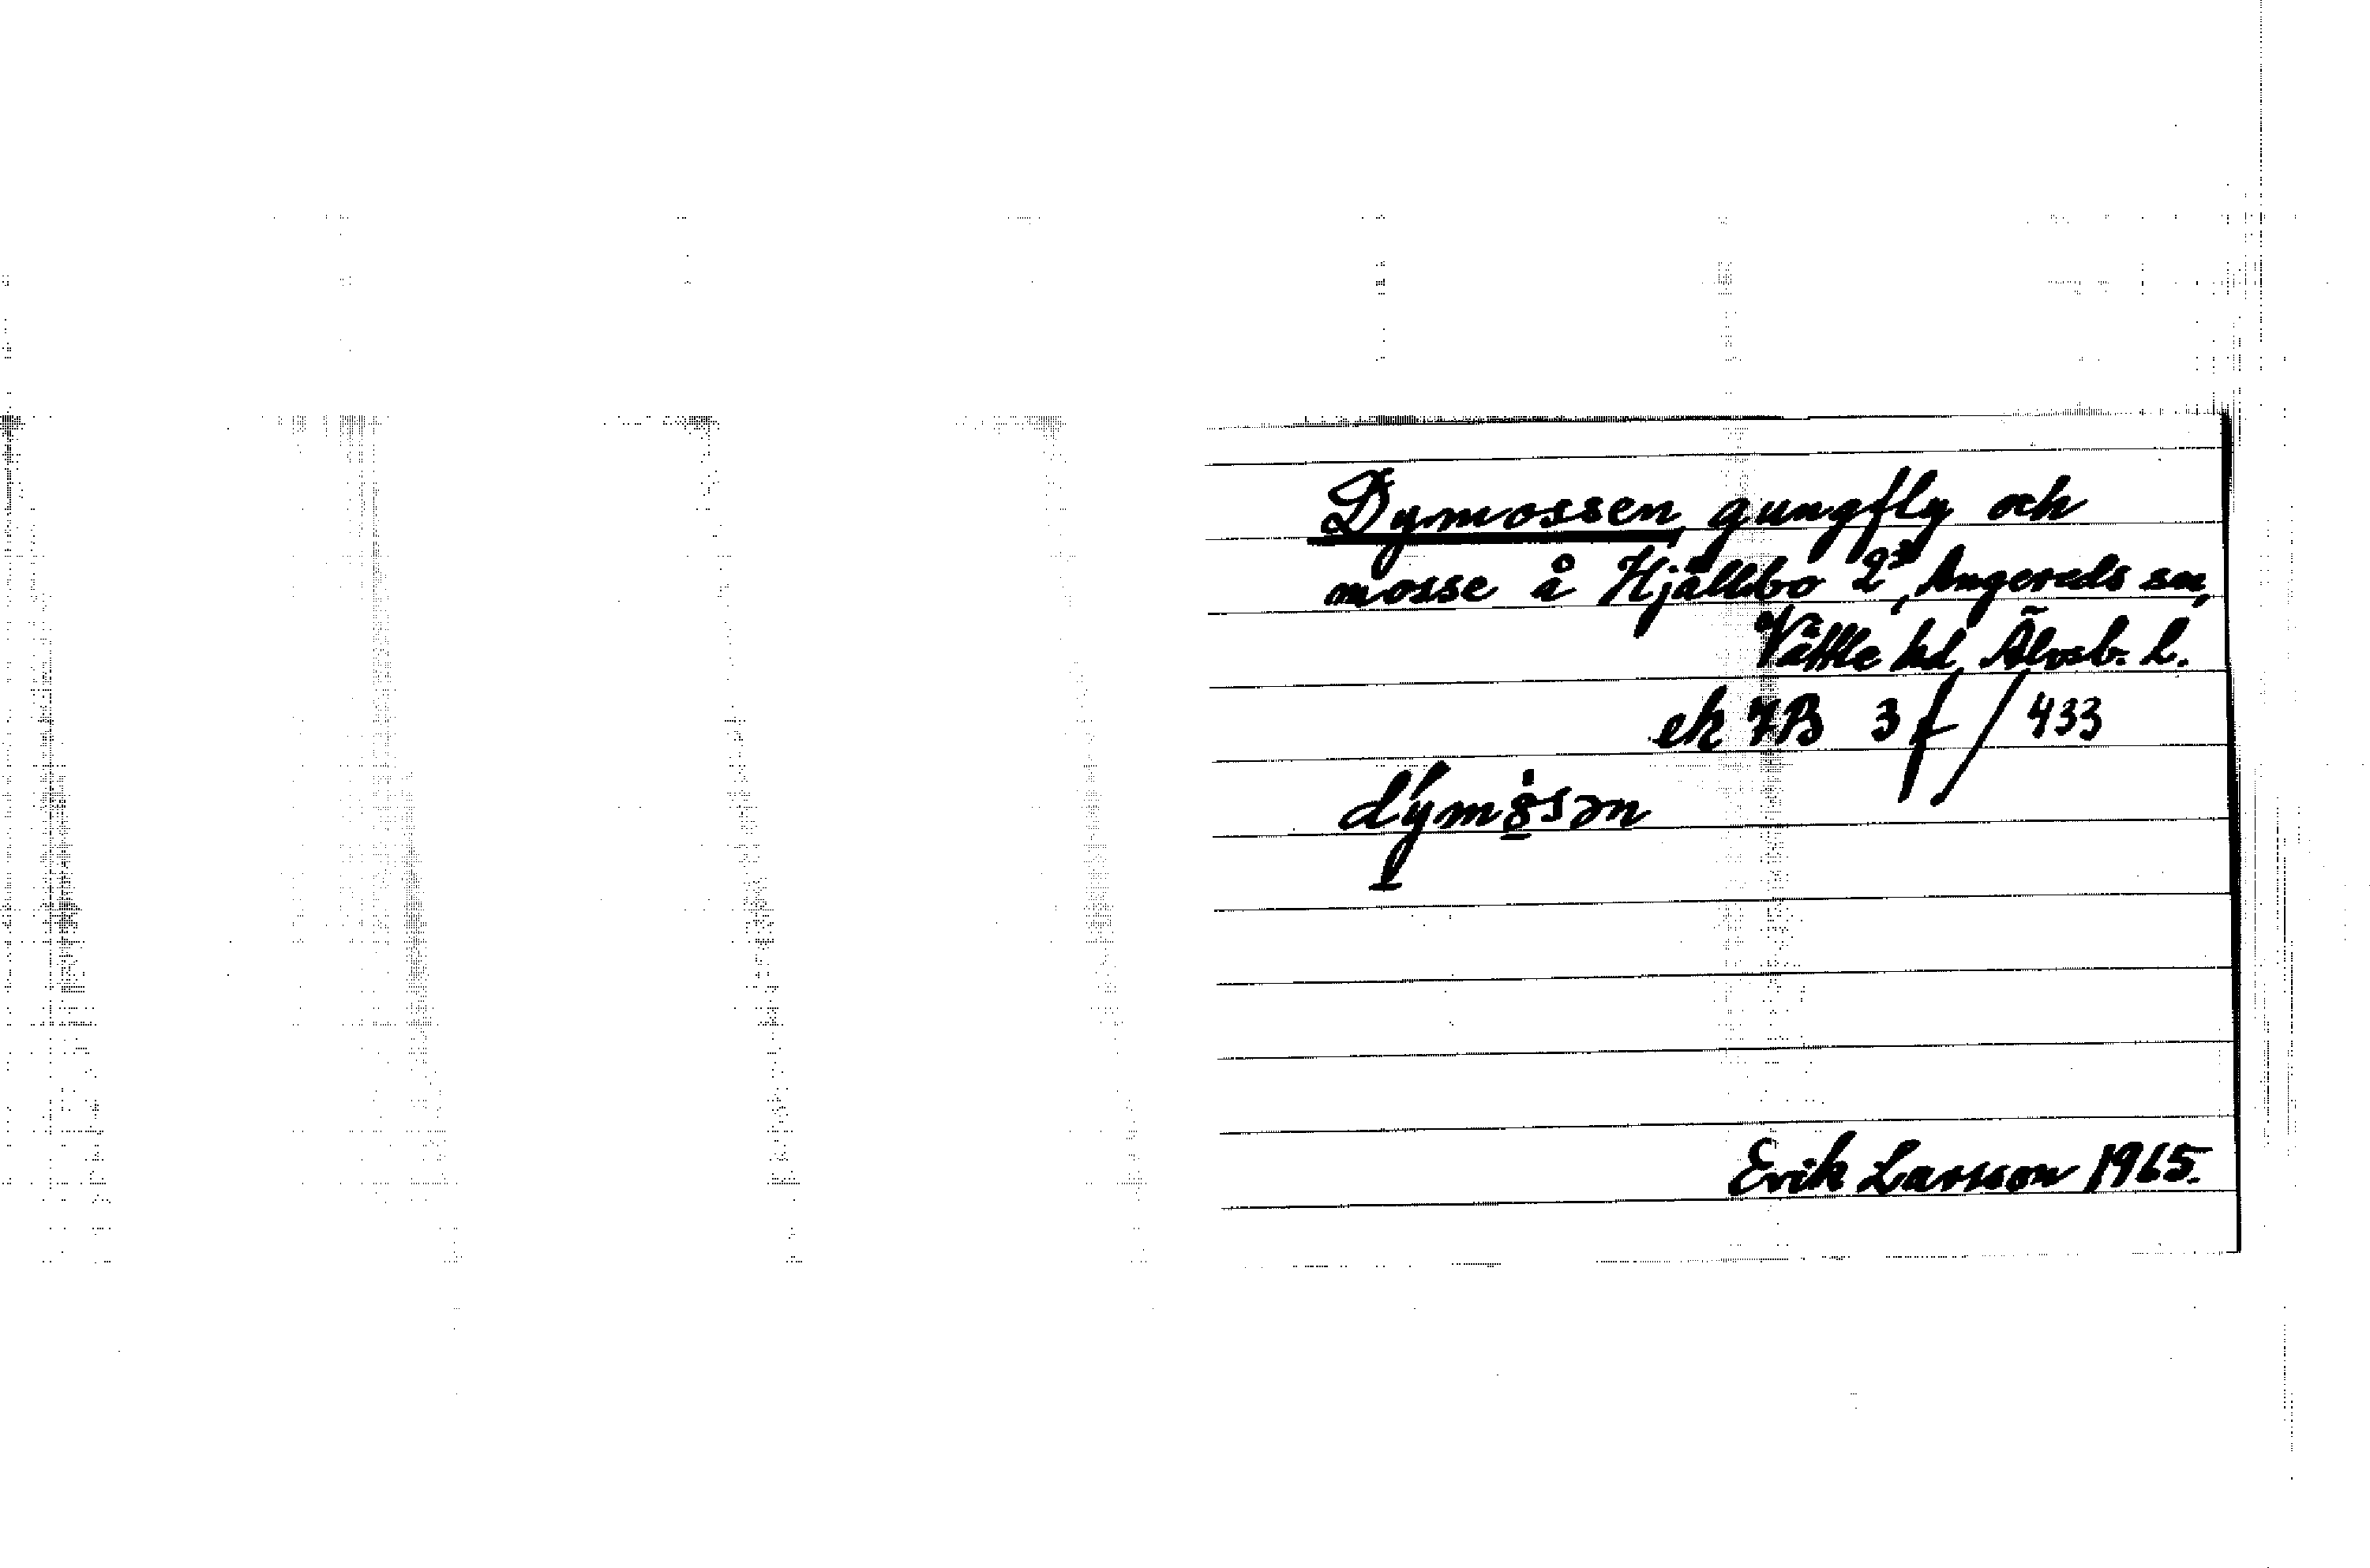 Dymossen, gungfly och
mosse å Hjällbo 2³, Angereds sn,
Vättle hd, Älvsb. L.
ek 7B 3f / 433
Erik Larsson 1965.